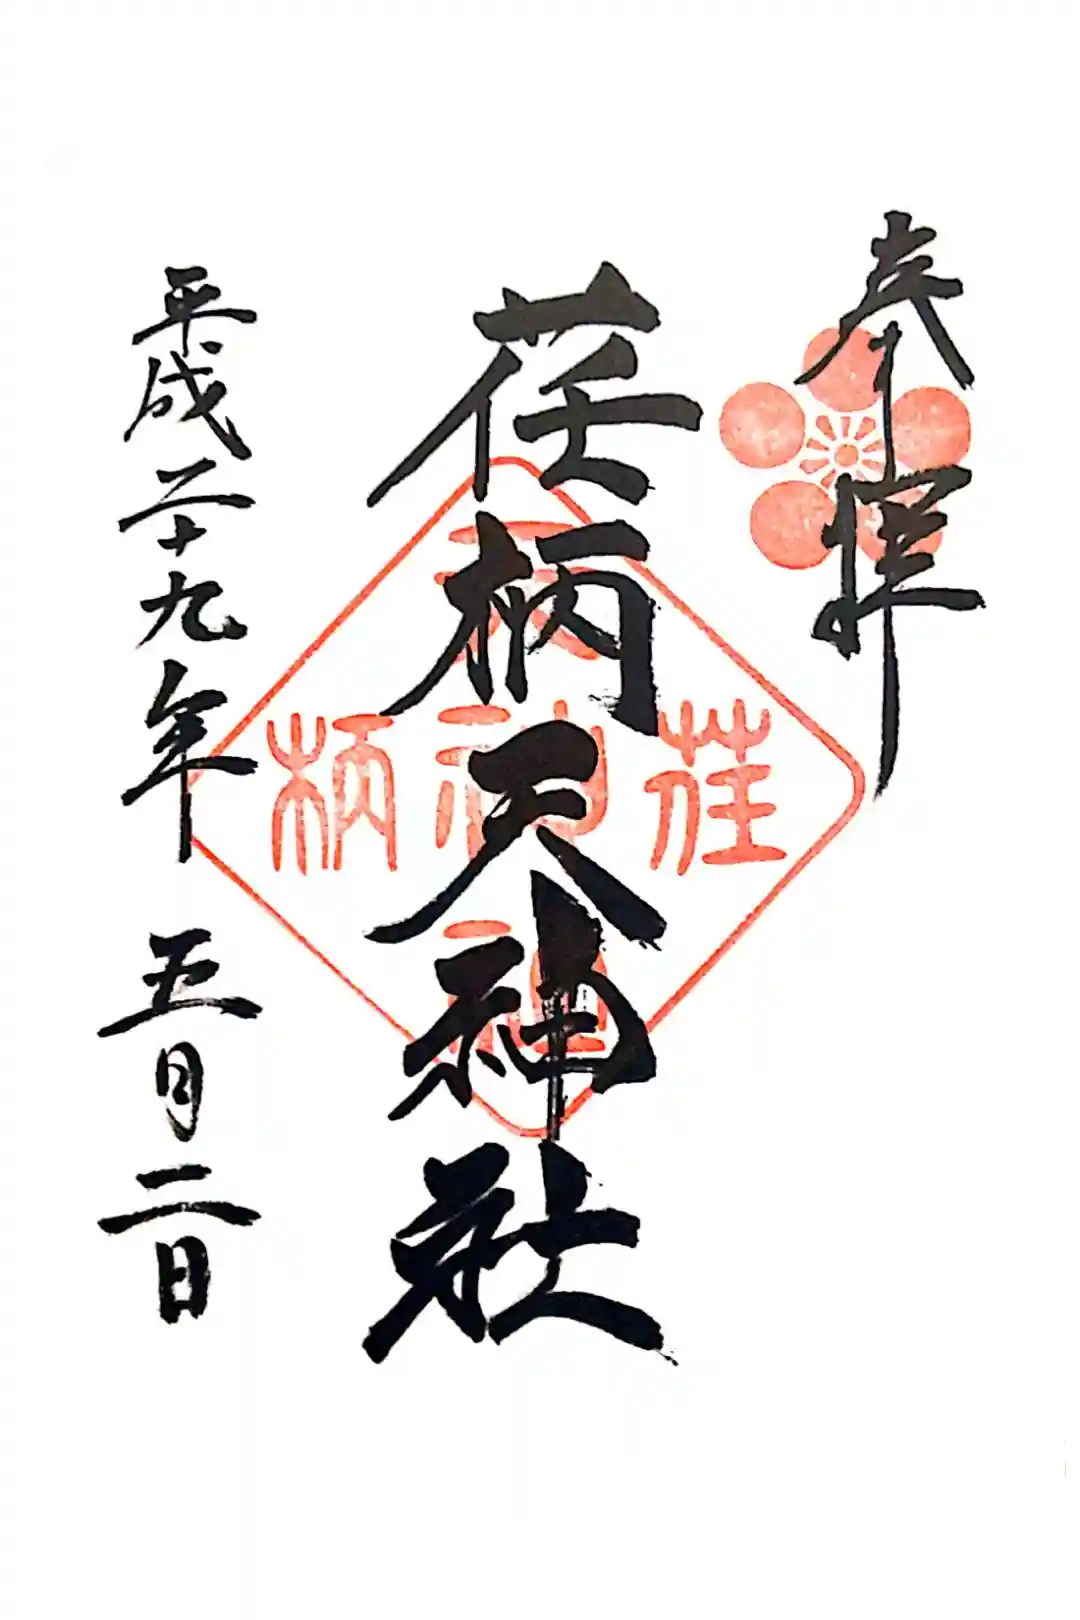 奉拝
荏柄天神社
平成二十九年 五月二日
天
荏神柄
社